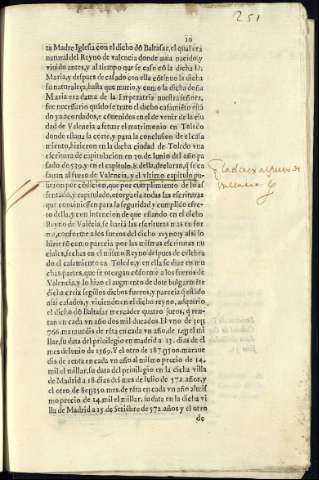 251
10
ta Madre Iglesia con el dicho dõ Baltasar, el qual era
natural del Reyno de Valencia donde auia nacido, y
viuido antes, y al tiempo que se caso cõ la dicha D.
Maria, y despues de casado con ella cõtinuo la dicha
su naturaleza, hasta que murio, y como la dicha doña
Maria era dama de la Emperatriz nuestra señora,
fue necessario quãdo se trato el dicho casamiẽto estã
do ya acordados, y cõuenidos en el de venir de la ciu
dad de Valencia a fetuar el matrimonio en Toledo
donde estaua la corte, y para la conclusion de el casa
miento, hizieron en la dicha ciudad de Toledo vna
escritura de capitulacion en 30. de Iunio del año pa
sado de 559. y en el capitulo. 8. della, declararon, q̃ se ca
sauan al fuero de Valencia, y el vltimo capitulo pu
sieron por cõdicion, que por cumplimiento de lo as
sentado, y capitulado, otorgassẽ todas las escrituras
que conuiniessen para la seguridad y cumplido efec
to della, y con intencion de que estando en el dicho
Reyno de Valencia, se harià las escrituras mas en for
ma, conforme a los fueros del dicho reyno y assi lo
hizierõ como parecia por las mismas escrituras ru
ciales, hechas en el mismo Reyno despues de celebra
do el casamiento en Toledo, y en ella se dize en mu
chas partes, que se otorgaua cõforme a los fueros de
Valencia, y lo hizo el augmento de dote burgamen
de a cruix segũ los dichos fueros, y parecia q̃ estãdo
assi casados, y viuiendo en el dicho reyno, adquirio
el dicho dõ Baltasar mercader quatro juros, q̃ ren-
tan en cada vn año dos mil ducados. El vno de
766 marauedis de renta en cada vn año
llar, su data del priuilegio en madrid a 13. dias de el
mes de Iunio de 1569. Y el otro de 187.
dis de renta en cada vn año al mismo precio de 14.
mil el millar, su data del priuilegio en la dicha villa
de Madrid a 18 dias del mes de Iulio de 572. años, y
el otro de mrs. de rẽta en cada vn año al mis
mo precio de 14. mil el millar, su data en la dicha vi
lla de Madrid a 15 de Setiẽbre de 572. años y el otro
de
Valencia